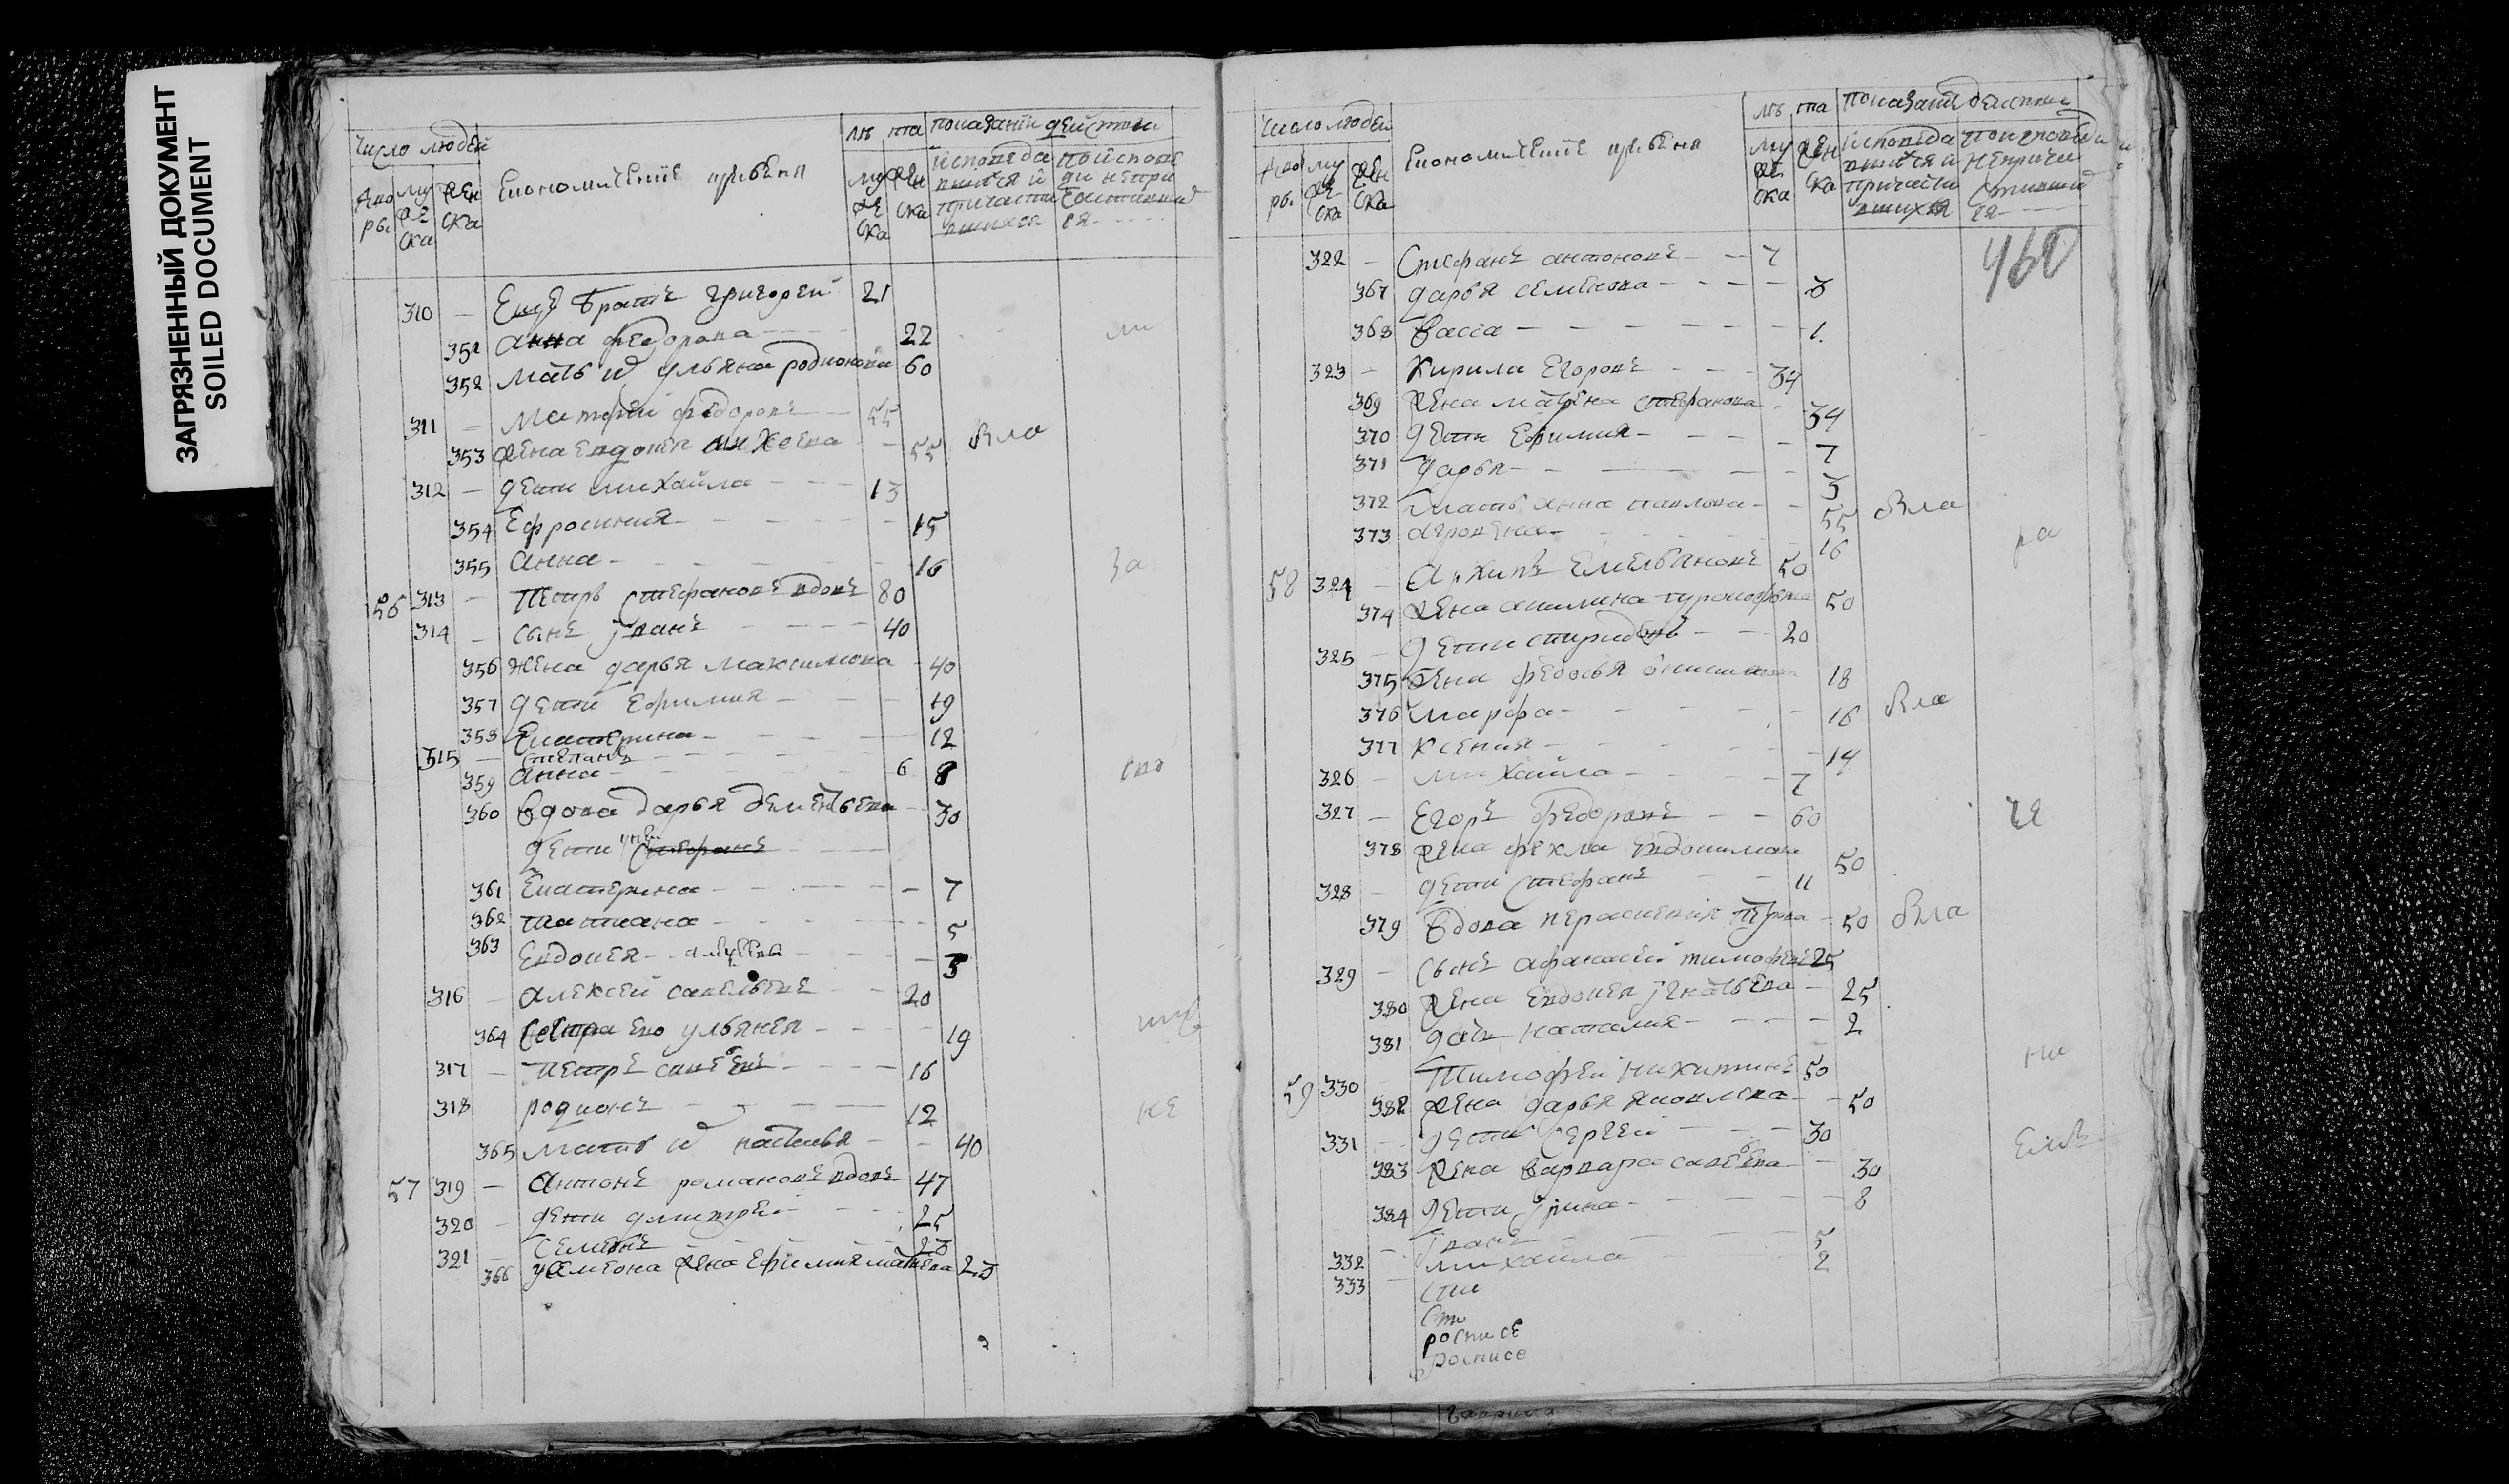 ЗАГРЯЗНЕННЫЙ ДОКУМЕНТ
SOILED DOCUMENT
число людей
лѣта
показанїи действ
дво ры.
му же ска
жен ска
Економическїе крестьяня
муже ска
жен ска
исповеда вшихся и причасти вшихся
по испове ди непри частивши ся
310 — Еще братъ григорей 21
351 анна федорова 22
352 мать их ульяна родионова 60
311 — матфей федоровъ 55
353 жена евдокея михеева 55 Вла
312 — дети михайла 13
354 Ефросиния 15
355 анна 16 за
56 313 — Петръ Стефановъ вдовъ 80
314 — сынъ іванъ 40
356 жена дарья максимова 40
357 дети Ефимия 19
358 Екатерина 12
315 — Степанъ 6
359 анна 8
360 вдова дарья дементьева 30
дети Стефанъ
361 Екатерина 7
362 татиана 5
363 Евдокея 3
316 — алексей савельевъ 20
364 сестра ево ульянея 19
317 — петръ савельевъ 16
318 родионъ 12 не
365 мать их наталья 40
57 319 — антонъ романовъ вдовъ 47
320 — дети дмитрей 25
321 — семионъ 23
366 у семиона жена Ефимия матвева 23
число людей
лѣта
показанїе действи
дво ры.
му же ска
жен ска
Економическїе крестьяня
му же ска
жен ска
исповеда вшихся и причасти вшихся
по исповеди непричи стивши ся
460
322 — Стефанъ антоновъ 7
367 дарья семенова 3
368 васса 1.
323 — Кирила Егоровъ 34
369 жена матрена стефанова 34
370 дети Ефимия 7
371 дарья 3
372 мать анна павлова 55 Вла
373 агрофена 16 ра
58 324 — архипъ Емельяновъ 50
374 жена акилина 50
325 — дети спиридонъ 20
375 жена федосья 18
376 марфа 16 Вла
377 ксения 14
326 — михайла 7
327 — Егоръ федоровъ 60 че
378 жена фекла Евдокимова 50
328 — дети стефанъ 11
379 вдова параскевия петрова 50 Вла
329 — сынъ афанасей тимофеевъ 25
380 жена Евдокея ігнатьева 25
381 дочь наталия 2
59 330 — Тимофей никитинъ 50 ни
382 жена дарья яковлева 50
331 — дети сергей 30
383 жена варвара савельева 30
384 дети ірина 8
332 — іванъ 5
333 — михайла 2
роспись
роспись
гаврила